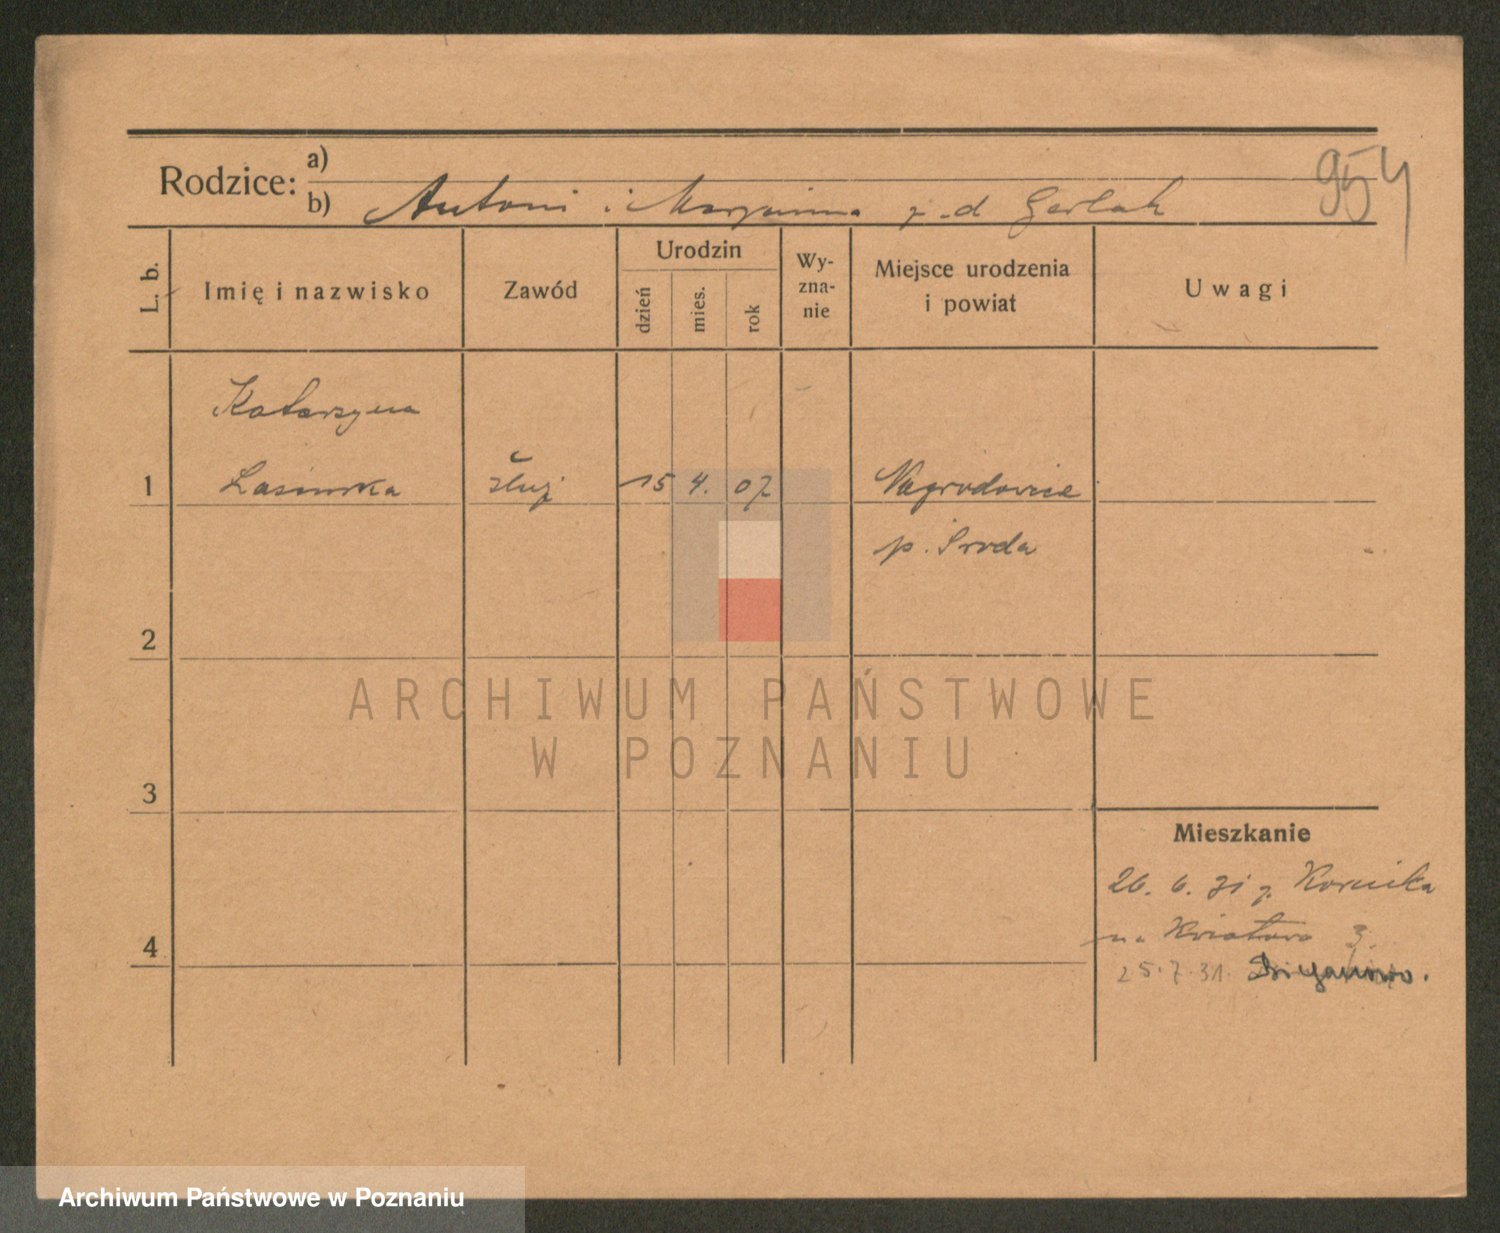 954
Rodzice: a)
b) Antoni i Maryanna z.d Gerlak
L. b.
Imię i nazwisko
Zawód
Urodzin
dzień
mies.
rok
Wy-
zna-
nie
Miejsce urodzenia
i powiat
Uwagi
Katarzyna
1 Lasińska służ 15 4. 07 Nagradowice
p. Środa
2
3
4
Mieszkanie
26. 6. 31 z. Kornika
na Kwiatowa 3.
25.7.31.
ARCHIWUM PAŃSTWOWE
W POZNANIU
Archiwum Państwowe w Poznaniu